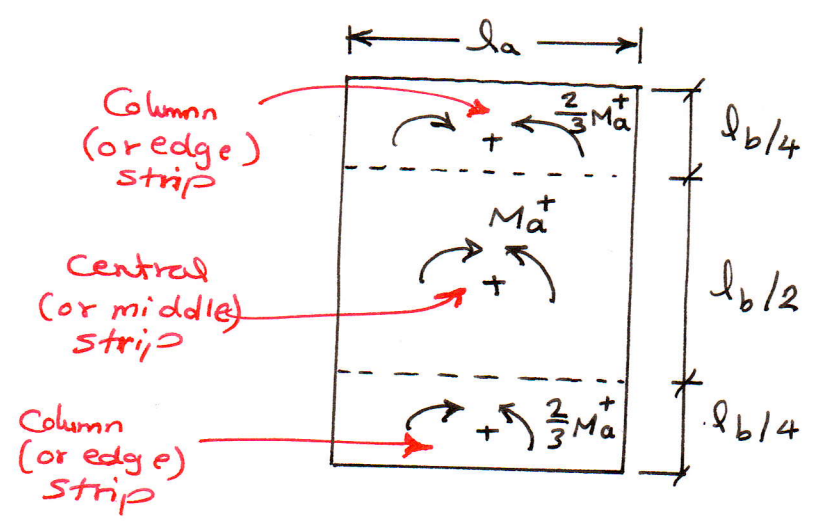 la
Column
(or edge)
strip
+
2/3 Ma+
lb/4
Ma+
Central
(or middle)
strip
+
lb/2
Column
(or edge)
strip
+
2/3 Ma+
lb/4